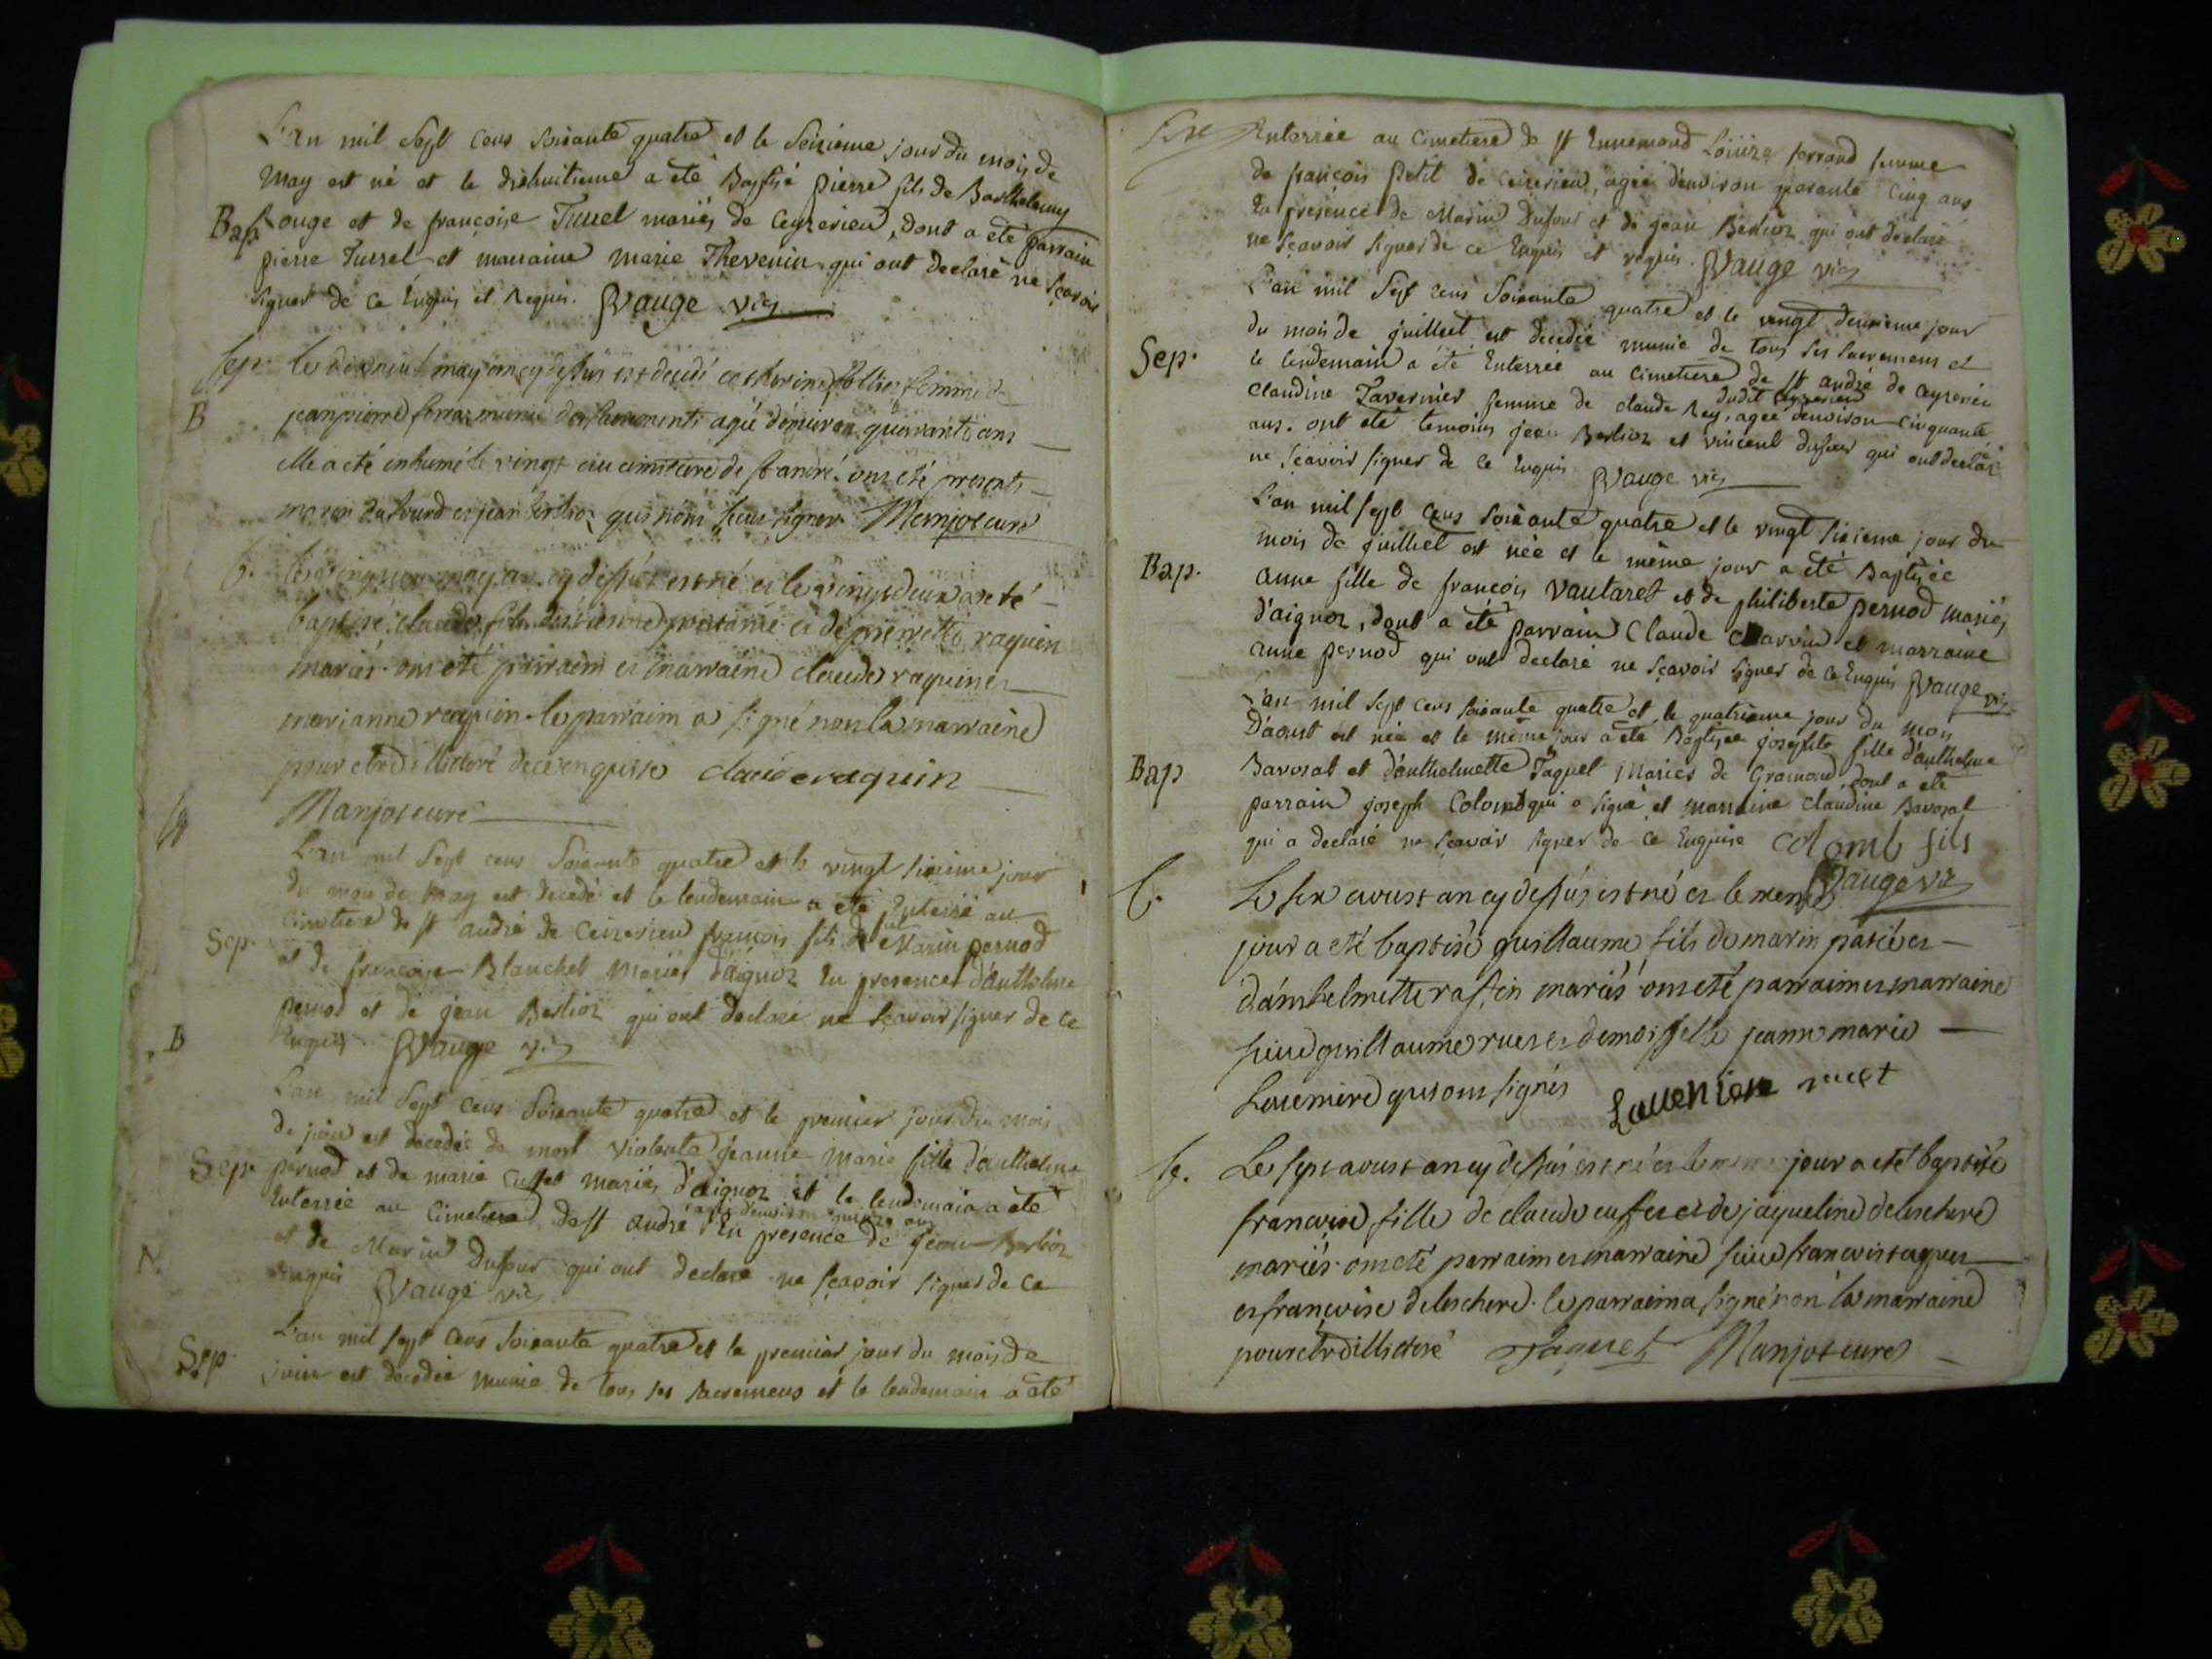 L'an mil Sept cens Soixante quatre et le Seizieme jour du mois de
May est né et le dixhuitieme a eté Baptisé pierre fils de Barthelemy
Bap. Louge et de françoise Tussel mariés de Ceyzerieu, dont a eté parrain
pierre Tussel et marraine marie Thevenin qui ont declaré ne sçavoir
signer de ce Enquis et Requis. Vauge vic
Sep. le dixneuf may an cy dessus est decedé catherine femme de
B jean pierre munie des sacrements agée d'environ quarante ans
elle a eté inhumé le vingt au cimetiere de st andré. ont eté presents
marin dufourd et jean berlioz qui n'ont sceu signer Manjot curé
b. le vingt may an cy dessus est né et le vingt deux a eté
baptisé claude fils et de pierrette raquin
mariés. ont eté parraim et marraine claude raquin et
marianne raquin. le parraim a signé non la marraine
pour etre illiteré de ce enquise claude raquin
Manjot curé
L'an mil Sept cens Soixante quatre et le vingt sixieme jour
du mois de May est decedé et le lendemain a eté Enterré au
cimetiere de st andré de Ceizerieu françois fils de Marin pernod
Sep. et de françoise Blanchet Mariés d'aignoz En presence d'anthelme
pernod et de jean Berlioz qui ont declaré ne sçavoir signer de ce
B Enquis. Vauge vic
L'an mil Sept cens Soixante quatre et le premier jour du mois
de juin est decedée de mort violente jeanne marie fille d'anthelme
Sep. pernod et de marie Cusset mariés d'aignoz et le lendemain a eté
agée d'environ quinze ans
Enterrée au Cimetiere de st andré En presence de jean Berlioz
N. et de Marin Dufour qui ont declaré ne sçavoir signer de ce
enquis Vauge vic
L'an mil sept cens soixante quatre et le premier jour du mois de
Sep. juin est decedée munie de tous ses sacremens et le lendemain a eté
Enterrée au Cimetiere de st Ennemond Loüize ferrand femme
de françois petit de Ceizerieu, agée d'environ quarante Cinq ans
En presence de Marin Dufour et de jean Berlioz qui ont declaré
ne sçavoir signer de ce Enquis et requis. Vauge vic
L'an mil Sept cens Soixante quatre et le vingt deuxieme jour
du mois de juillet est decedée munie de tous ses sacremens et
Sep. le lendemain a été Enterrée au Cimetiere de st andré de Ceyzerieu
dudit Ceyzerieu
Claudine Tavernier femme de claude Rey, agée d'environ cinquante
ans. ont eté temoins jean Berlioz et vincent dufour qui ont declaré
ne sçavoir signer de ce Enquis Vauge vic
L'an mil sept cens soixante quatre et le vingt sixieme jour du
mois de juillet est née et le même jour a eté Baptisée
Bap. anne fille de françois Vautaret et de philiberte pernod mariés
d'aignoz, dont a été parrain Claude Charvin et marraine
anne pernod qui ont declaré ne sçavoir signer de ce Enquis Vauge vic
L'an mil sept cens soixante quatre et le quatrieme jour du mois
D'aoust est née et le même jour a été Baptisée josephte fille d'anthelme
Bap Bavozat et d'anthelmette Taquet Mariés de Gramond, dont a eté
parrain joseph Colomb qui a signé et marraine claudine Bavozat
qui a declaré ne sçavoir signer de ce Enquise colomb fils
Vauge vic
b. Le six aoust an cy dessus est né et le meme
jour a eté baptisé guillaume fils de marin et
d'anthelmette mariés ont eté parraim et marraine
sieur guillaume ruet et demoiselle jeanne marie
Laveniere qui ont signés Laueniere ruet
b. Le sept aoust an cy dessus est né et le meme jour a eté baptisé
françoise fille de claude cusset et de jaqueline delechere
mariés. ont eté parraim et marraine sieur françois taquet
et françoise delechere. le parraim a signé non la marraine
pour etre illitteré Taquet Manjot curé